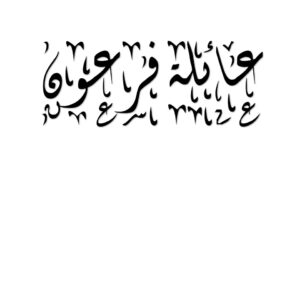 عائلة فرعون